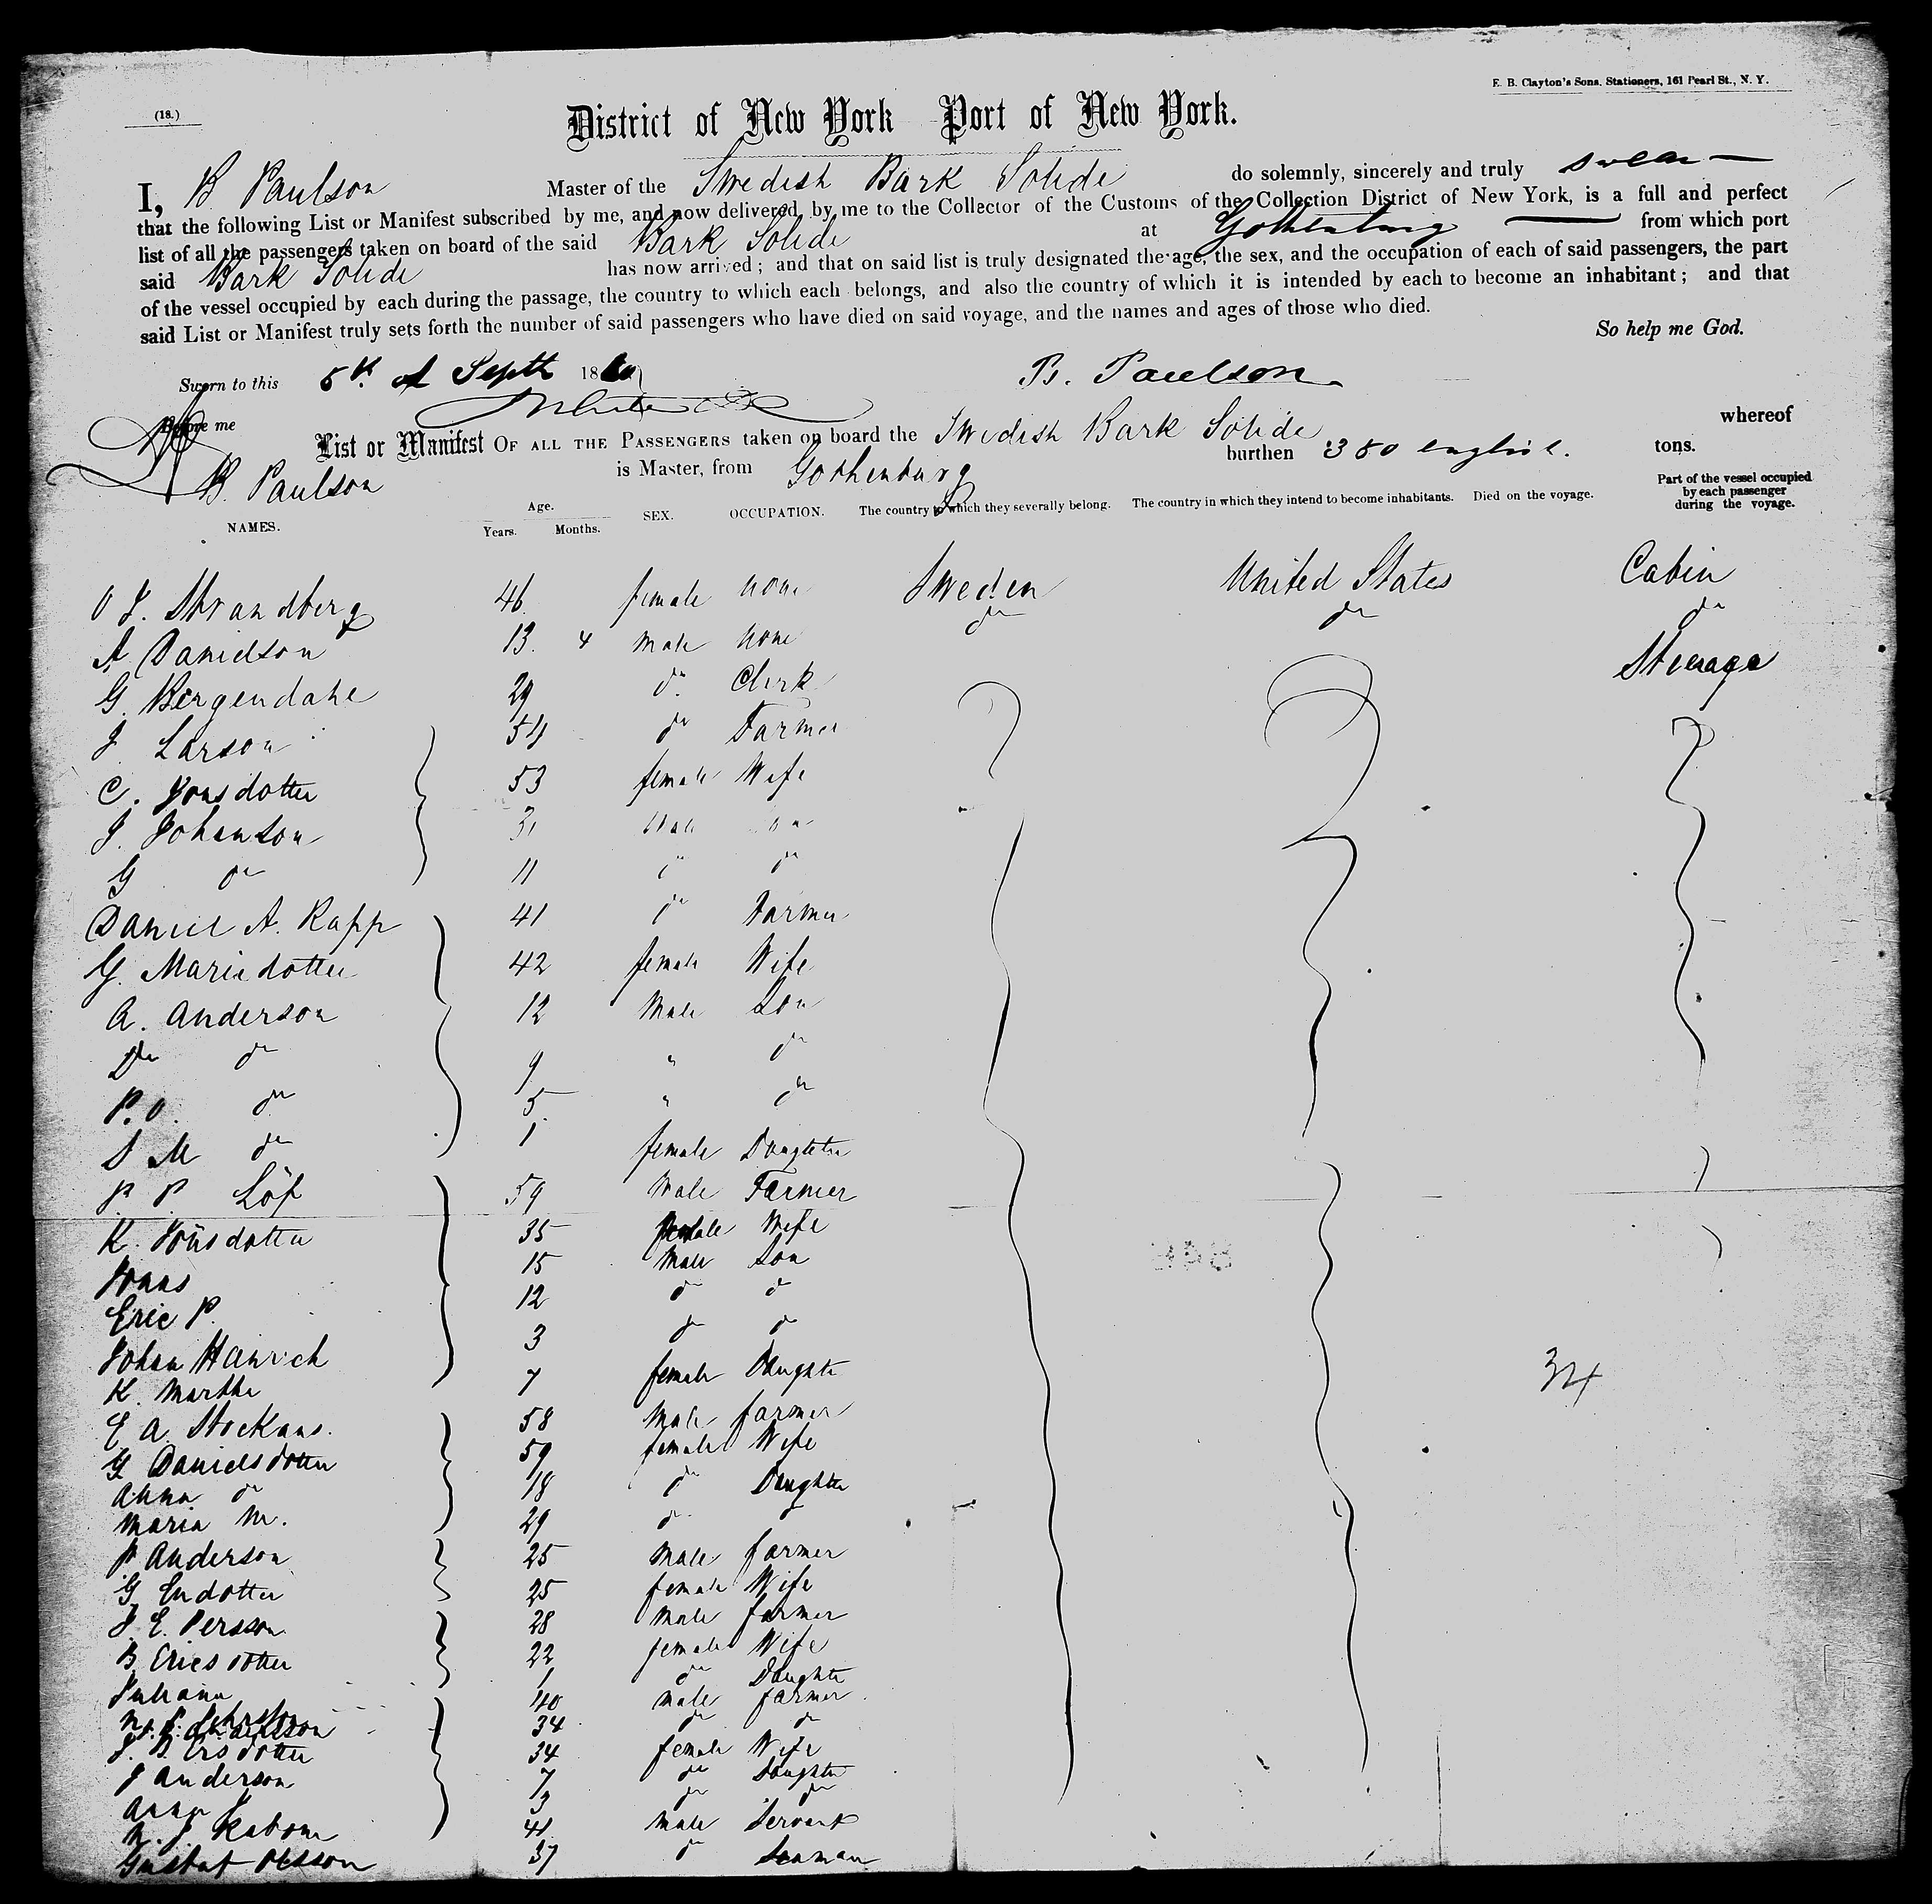 E. B. Clayton's Sons. Stationers, 161 Pearl St., N. Y.
(18.)
District of New York Port of New York.
I, B Paulson Master of the Swedish Bark Solide do solemnly, sincerely and truly swear
that the following List or Manifest subscribed by me, and now delivered by me to the Collector of the Customs of the Collection District of New York, is a full and perfect
list of all the passengers taken on board of the said Bark Solide at Gothenburg from which port
said Bark Solide has now arrived; and that on said list is truly designated the age, the sex, and the occupation of each of said passengers, the part
of the vessel occupied by each during the passage, the country to which each belongs, and also the country of which it is intended by each to become an inhabitant; and that
said List or Manifest truly sets forth the number of said passengers who have died on said voyage, and the names and ages of those who died.
So help me God.
Sworn to this 5th of Septb 1860 B. Paulson
Before me
List or Manifest OF ALL THE PASSENGERS taken on board the Swedish Bark Solide whereof
B. Paulson is Master, from Gothenburg burthen 380 english. tons.
NAMES. Age. Years. Months. SEX. OCCUPATION. The country to which they severally belong. The country in which they intend to become inhabitants. Died on the voyage. Part of the vessel occupied by each passenger during the voyage.
O J. Strandberg 46 female none Sweden United States Cabin
A Danielson 13. 4 male none do do do
G. Bergendahl 29 do. Clerk Steerage
J Larson 54 do Farmer
C. Jonsdotter 53 female Wife
J. Johanson 31 Male
G do 11 " do
Daniel A. Rapp 41 do Farmer
G. Mariedotter 42 female Wife
A. Anderson 12 Male Son
do 9 " do
P. O. do 5 " do
S M do 1 female Daughter
P. P. Löf 59 Male Farmer
K. Jönsdotter 35 female Wife
Jonas 15 Male Son
Eric P. 12 do do
Johan Hanrich 3 do do
K. Martha 7 female Daughter
E A. Stockans. 58 Male farmer
G Danielsdotter 59 female Wife
Anna do 18 do Daughter
Maria M. 29 do do
P. Anderson 25 Male farmer
G. Endotter 25 female Wife
J. E. Persson 28 Male farmer
B. Ericsdotter 22 female Wife
Juliana 1 do Daughter
40 male farmer
34 do do
J. B. Ersdotter 34 female Wife
J Anderson 7 do Daughter
Anna J 3 do do
N. J. 41 male Servant
Gustaf Olsson 37 do Seaman
34